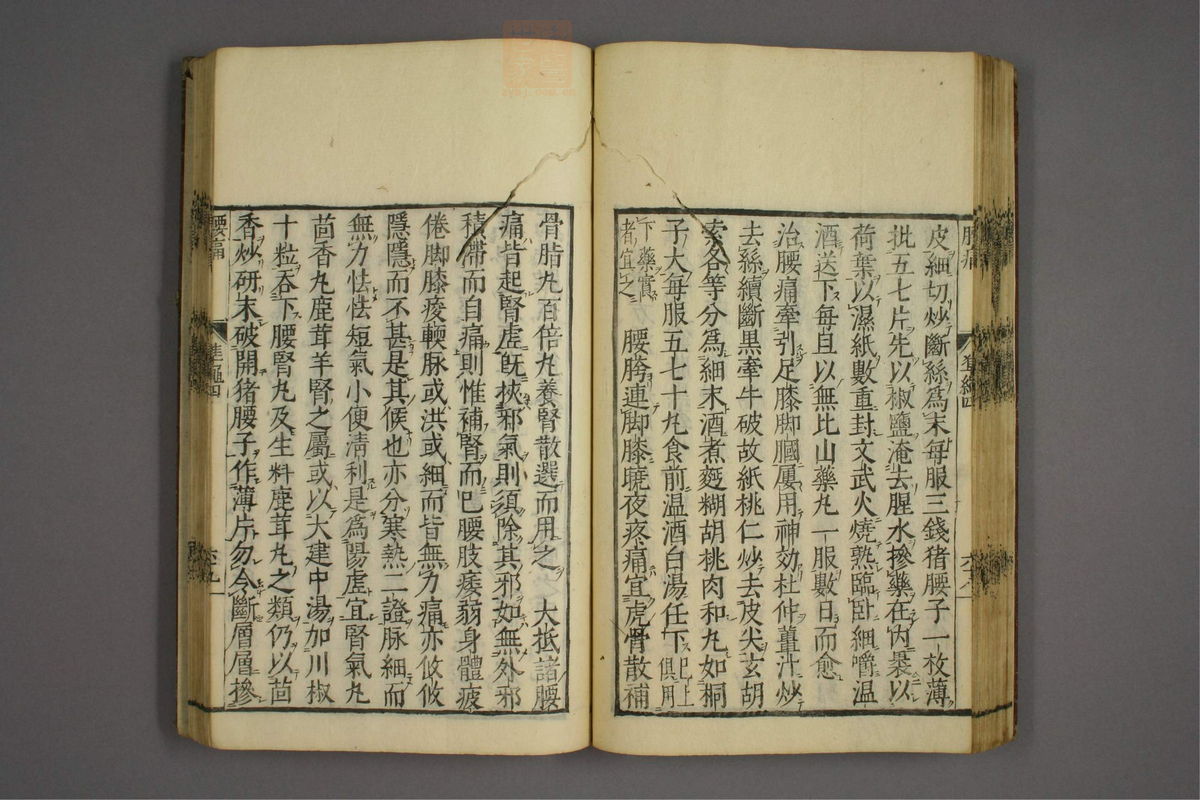 皮細切炒斷絲爲末每服三錢猪腰子一枚薄
批五七片先以椒鹽淹去腥水摻藥在内裹以
荷葉以濕紙數重封文武火燒熟臨卧細嚼温
酒送下每旦以無比山藥丸一服數日而愈
治腰痛牽引足膝脚膕屢用神効杜仲薑汁炒
去絲續斷黒牽牛破故紙桃仁炒去皮尖玄胡
索各等分爲細末酒煮麪糊胡桃肉和丸如桐
子大每服五七十丸食前温酒白湯任下已上俱用
下藥實者宜之 腰胯連脚膝曉夜疼痛宜虎骨散補
骨脂丸百倍丸養腎散選而用之 大抵諸腰
痛皆起腎虛既挾邪氣則須除其邪如無外邪
積滯而自痛則惟補腎而已腰肢痿弱身體疲
倦脚膝痠輭脉或洪或細而皆無力痛亦攸攸
隱隱而不甚是其候也亦分寒熱二證脉細而
無力怯怯短氣小便淸利是爲陽虛宜腎氣丸
茴香丸鹿茸羊腎之屬或以大建中湯加川椒
十粒吞下腰腎丸及生料鹿茸丸之類仍以茴
香炒研末破開猪腰子作薄片勿令斷層層摻
腰痛